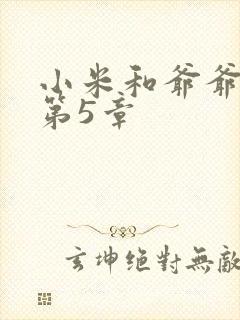 小米和爷爷
第5章
玄坤绝对無敵